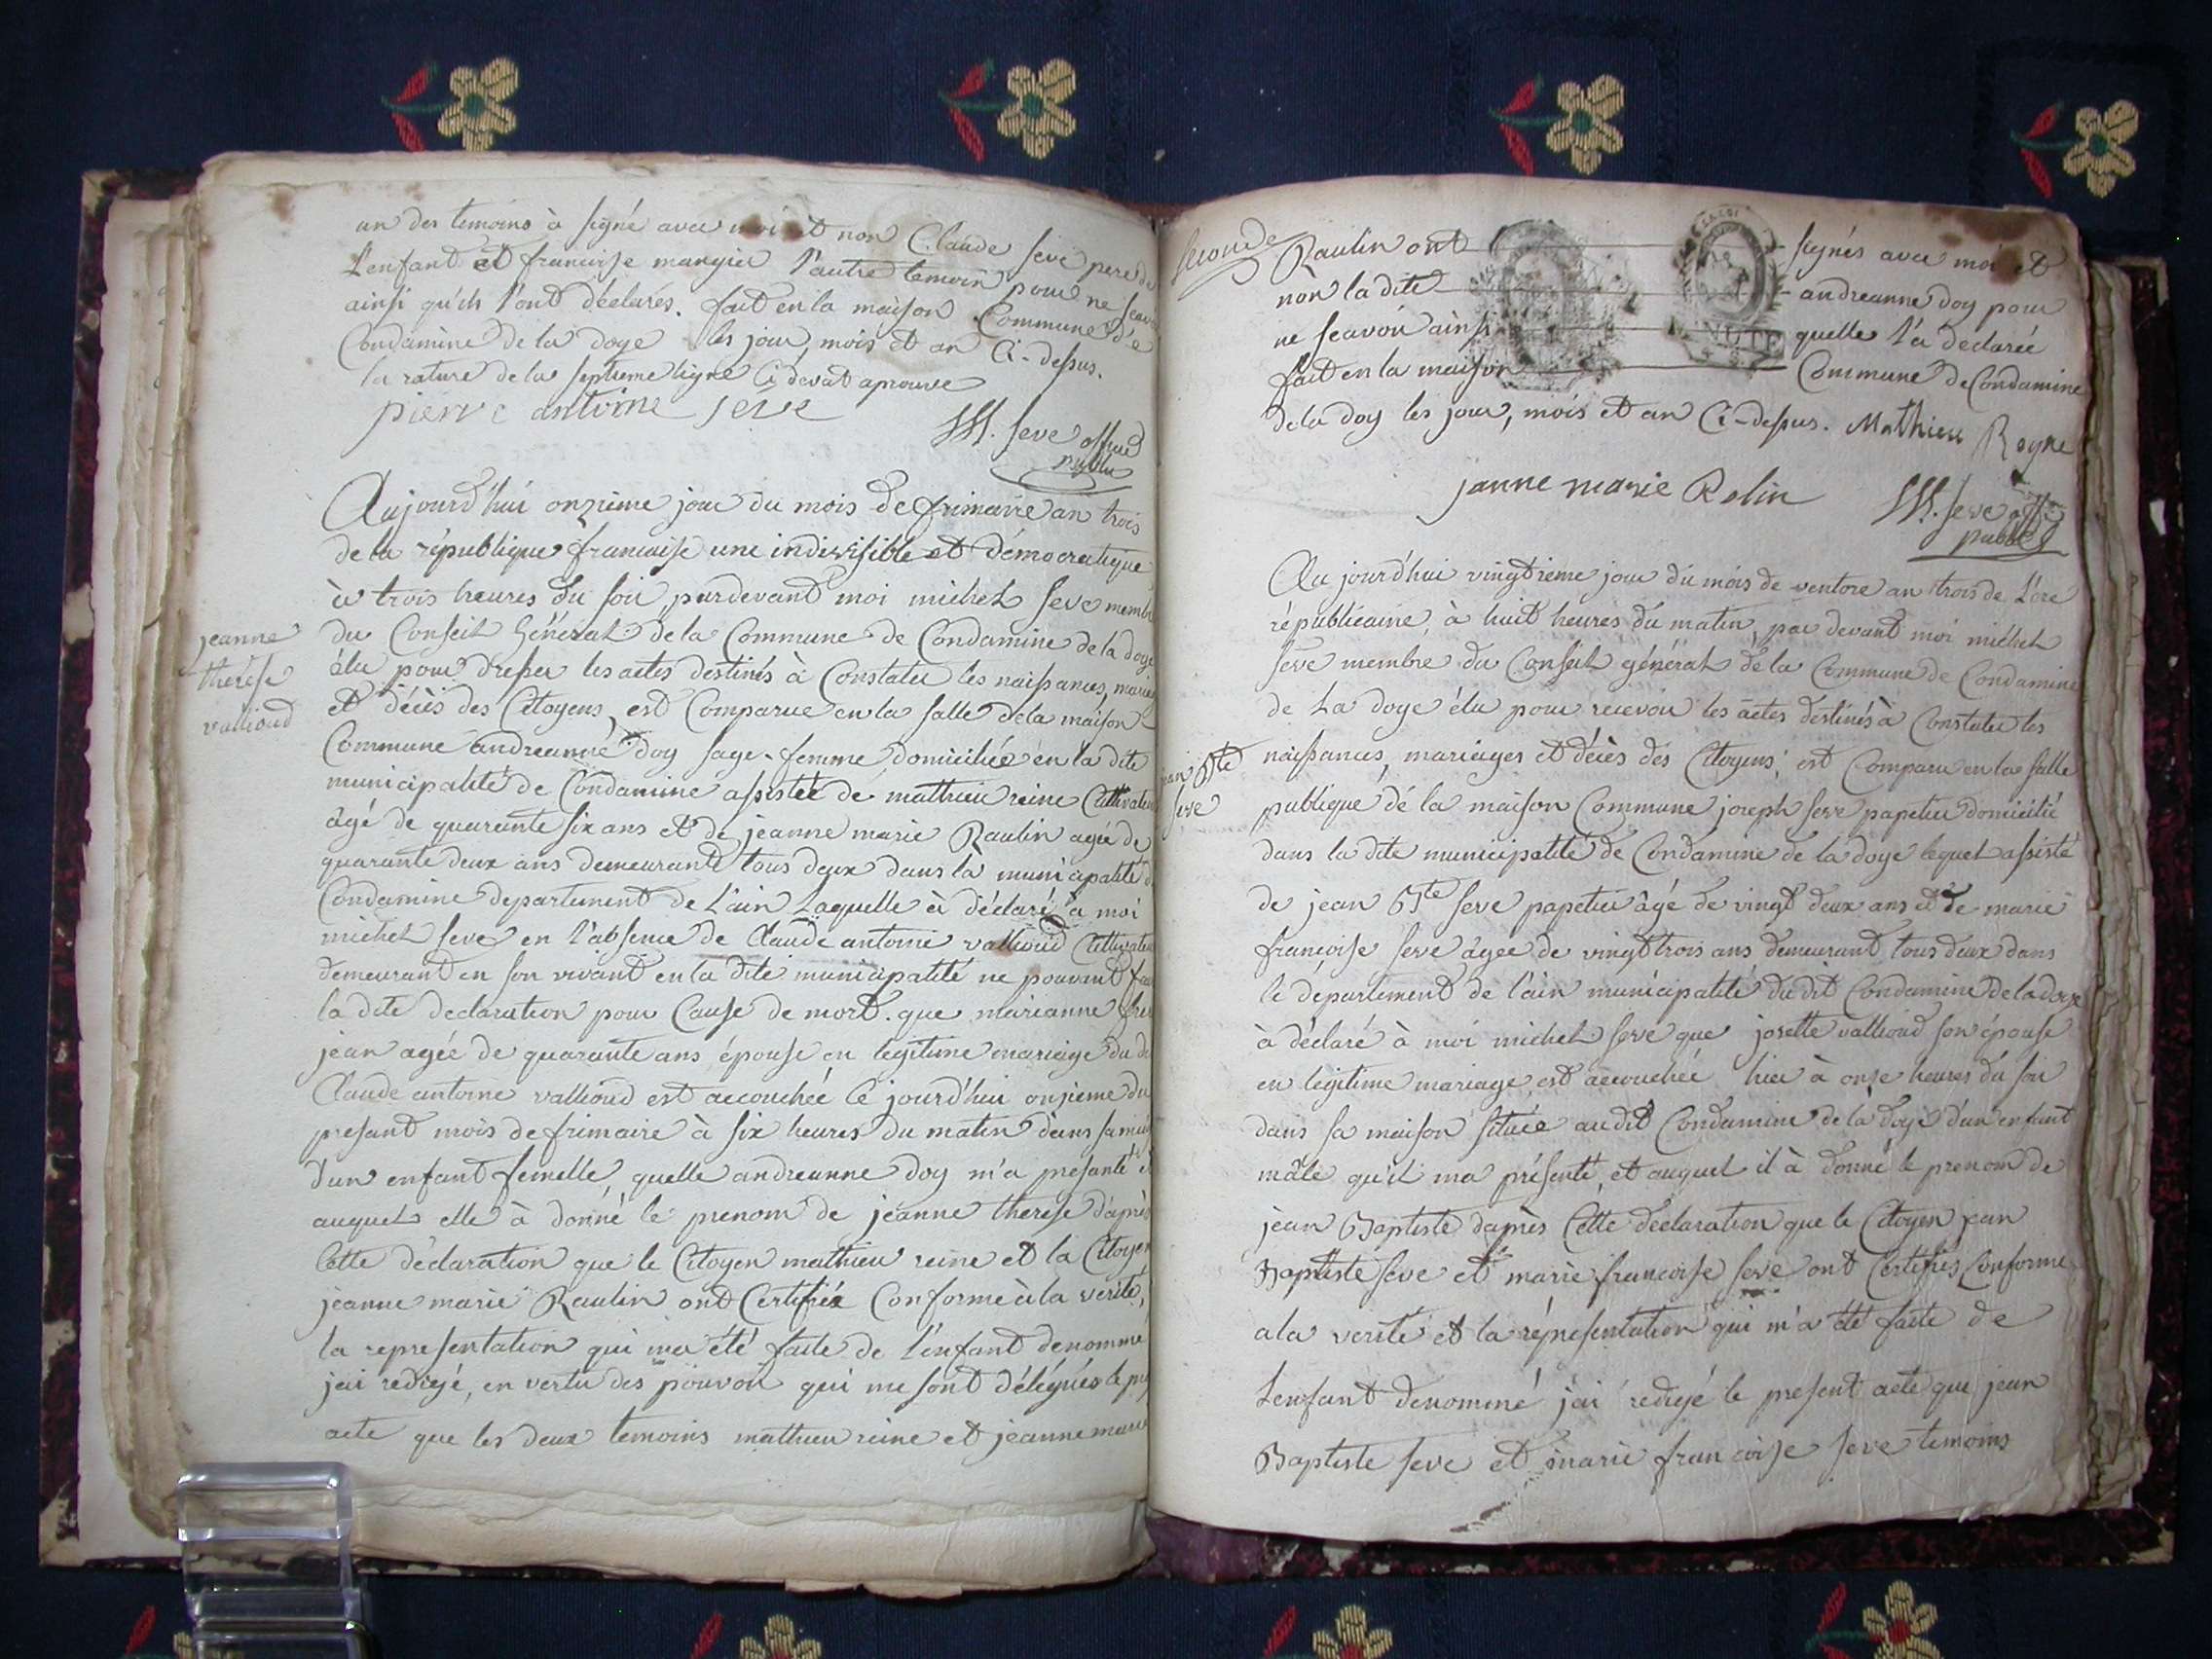 un des temoins à signé avec moi et non Claude seve pere de
L'enfant et francoise mangier l'autre temoin pour ne scavoir
ainsi qu'ils l'ont déclarés. fait en la maison Commune de
Condamine de la doye les jour, mois et an Ci-dessus.
la rature de la septieme ligne Ci devat aprouve
pierre antoine seve
M. seve officier
public
Aujourd'hui onzieme jour du mois de frimaire an trois
de la république francaise une indivisible et démocratique
à trois heures du soir, pardevant moi michel seve membre
du Conseil Général de la Commune de Condamine de la doye
jeanne
therese
vallioud
élu pour dresser les actes destinés à Constater les naissances, mariages
et décès des Citoyens, est Comparue en la salle de la maison
Commune andreanne doy sage-femme domiciliée en la dite
municipalité de Condamine assistée de matthieu reine Cultivateur
âgé de quarante six ans et de jeanne marie Raulin agée de
quarante deux ans demeurant tous deux dans la municipalité de
Condamine departement de L'ain Laquelle à déclaré à moi
michel seve en l'absence de Claude antoine vallioud Cultivateur
demeurant en son vivant en la dite municipalité ne pouvant faire
la dite declaration pour Cause de mort. que marianne
jean agée de quarante ans épouse en legitime mariage du dit
Claude antoine vallioud est accouchée Ce jourd'hui onzieme du
presant mois de frimaire à six heures du matin dans sa maison
d'un enfant femelle quelle andreanne doy m'a presanté et
auquel elle à donné le prenom de jeanne therese d'après
Cette déclaration que le Citoyen mathieu reine et la Citoyenne
jeanne marie Raulin ont Certifiée Conforme à la verité,
la representation qui ma été faite de l'enfant denommé
jai redigé, en vertu des pouvoir qui me sont délégués le
acte que les deux temoins mathieu reine et jeanne marie
seconde
Raulin ont signés avec moi et
non la dite andreanne doy pour
ne scavoir ainsi quelle l'a déclarée
MINUTE
fait en la maison Commune de Condamine
de la doy les jour, mois et an Ci-dessus. Mathieu Reyne
janne marie Rolin
M. seve offi
public
Au jourd'hui vingtieme jour du mois de ventose an trois de L'ere
républicaine à huit heures du matin, par devant moi michel
seve membre du Conseil général de la Commune de Condamine
de La doye élu pour recevoir les actes destinés à Constater les
jean Bte
seve
naissances, mariages et décès des Citoyens; est Comparu en la salle
publique de la maison Commune joseph seve papetier domicilié
dans la dite municipalité de Condamine de la doye lequel assisté
de jean Bte seve papetier âgé de vingt deux ans et de marie
francoise seve âgée de vingt trois ans demeurant tous deux dans
le département de l'ain municipalité du dit Condamine de la doye
à déclaré à moi michel seve que josette vallioud son épouse
en legitime mariage est accouchée hier à onze heures du soir
dans sa maison située audit Condamine de la doye d'un enfant
mâle qu'il ma présenté, et auquel il à donné le prenom de
jean Baptiste d'après Cette declaration que le Citoyen jean
Baptiste seve et marie francoise seve ont Certifiés Conforme
a la verité et la répresentation qui m'a été faite de
L'enfant denommé jai redigé le present acte que jean
Baptiste seve et marie francoise seve temoins